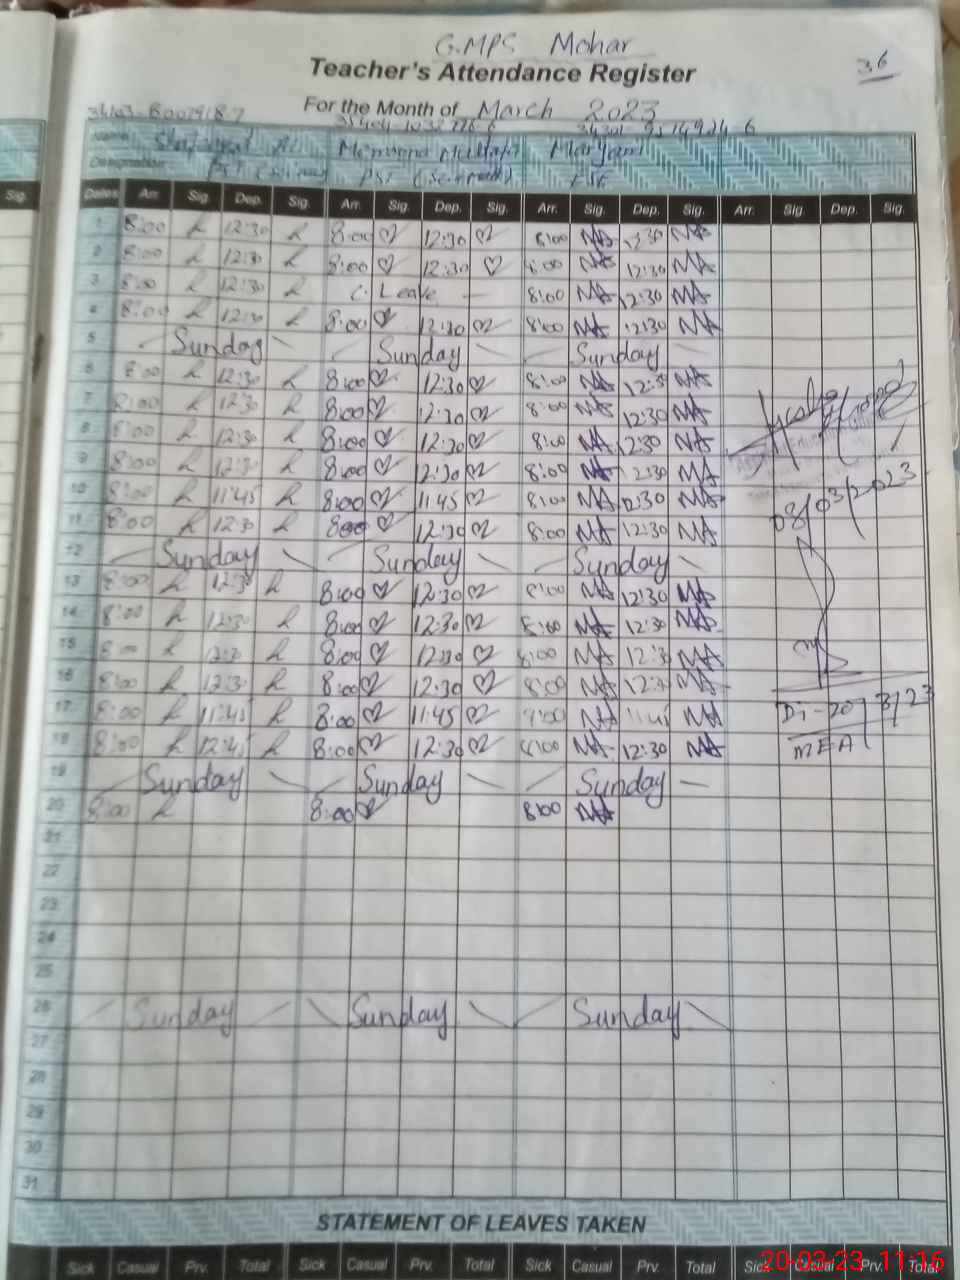 G.MPS Mohar
Teacher's Attendance Register
36
For the Month of March 2023
Maryam
PST
Sig. Dates Arr. Sig. Dep. Sig. Arr. Sig. Dep. Sig. Arr. Sig. Dep. Sig. Arr. Sig. Dep. Sig.
1 8:00 12:30 8:00 12:30 8:00 NA 12:30 NA
2 8:00 12:30 8:00 12:30 8:00 NA 12:30 NA
3 8:00 12:30 C. Leave 8:00 NA 12:30 NA
4 8:00 12:30 8:00 12:30 8:00 NA 12:30 NA
5 Sunday Sunday Sunday
6 8:00 12:30 8:00 12:30 8:00 NA 12:3 NA
7 8:00 12:30 8:00 12:30 8:00 NA 12:30 NA
8 8:00 12:30 8:00 12:30 8:00 NA 12:30 NA
9 8:00 12:30 8:00 12:30 8:00 NA 12:30 NA
10 8:00 11:45 8:00 11:45 8:00 NA 12:30 NA
08/03/2023
11 8:00 12:30 8:00 12:30 8:00 NA 12:30 NA
12 Sunday Sunday Sunday
13 8:00 12:30 8:00 12:30 8:00 NA 12:30 NA
14 8:00 12:30 8:00 12:30 8:00 NA 12:30 NA
15 8:00 12:30 8:00 12:30 8:00 NA 12:3 NA
16 8:00 12:30 8:00 12:30 8:00 NA 12:3 NA
17 8:00 11:45 8:00 11:45 8:00 NA 11:45 NA
Di-20/3/23
18 8:00 12:45 8:00 12:30 8:00 NA 12:30 NA
MEA
19 Sunday Sunday Sunday
20 8:00 8:00 8:00 NA
21
22
23
24
25
26 Sunday Sunday Sunday
27
28
29
30
31
STATEMENT OF LEAVES TAKEN
Sick Casual Prv. Total Sick Casual Prv. Total Sick Casual Prv. Total Sick Casual Prv. Total
20-03-23 11:16